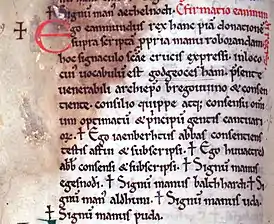 ✝ Signũ man' aethelnoth. Cfirmatio eanmun
Ego eanmundus rex hanc piã donationẽ
suprascriptã ppria manu roborandam
hoc signaculo scãe crucis expressi. in loco
cui uocabulũ est godgeoces ham. psente
uenerabili archiepo bregouuino & consen
tiente. consilio quippe atq; consensu omni
um optimatũ & principũ gentis cantuari
orũ. ✝ Ego iaenberhtus abbas consentiens
testis assto & subscripsi. ✝ Ego hunaered
abb' consensi & subscripsi. ✝ Signũ manus
egesnodi. ✝ Signũ manus balthhardi. ✝ Si
gnũ man' aldhuni. ✝ Signũ manus uda.
✝ Signũ manus puda.